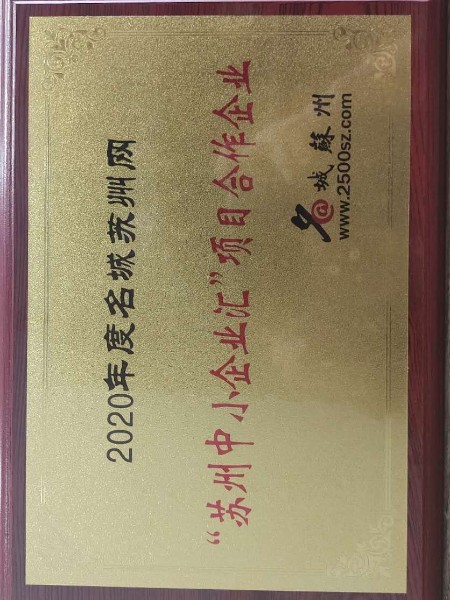 2020年度名城苏州网
“苏州中小企业汇”项目合作企业
名城蘇州
www.2500sz.com